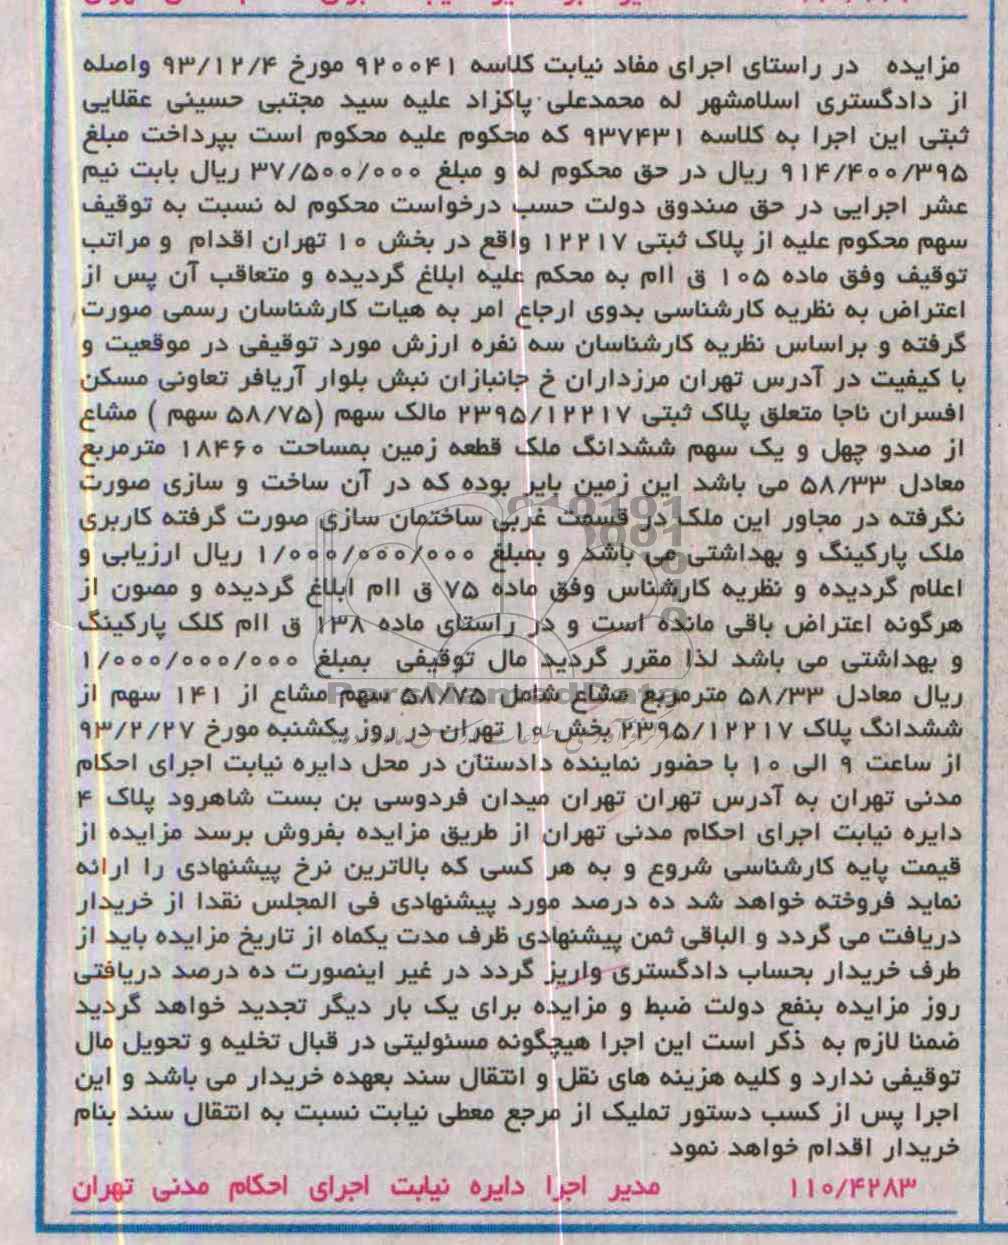 مزایده در راستای اجرای مفاد نیابت کلاسه ۹۲۰۰۴۱ مورخ ۹۳/۱۲/۴ واصله
از دادگستری اسلامشهر له محمدعلی پاکزاد علیه سید مجتبی حسینی عقلایی
ثبتی این اجرا به کلاسه ۹۳۷۴۳۱ که محکوم علیه محکوم است بپرداخت مبلغ
۹۱۴/۴۰۰/۳۹۵ ریال در حق محکوم له و مبلغ ۳۷/۵۰۰/۰۰۰ ریال بابت نیم
عشر اجرایی در حق صندوق دولت حسب درخواست محکوم له نسبت به توقیف
سهم محکوم علیه از پلاک ثبتی ۱۲۲۱۷ واقع در بخش ۱۰ تهران اقدام و مراتب
توقیف وفق ماده ۱۰۵ ق اام به محکم علیه ابلاغ گردیده و متعاقب آن پس از
اعتراض به نظریه کارشناسی بدوی ارجاع امر به هیات کارشناسان رسمی صورت
گرفته و براساس نظریه کارشناسان سه نفره ارزش مورد توقیفی در موقعیت و
با کیفیت در آدرس تهران مرزداران خ جانبازان نبش بلوار آریافر تعاونی مسکن
افسران ناجا متعلق پلاک ثبتی ۲۳۹۵/۱۲۲۱۷ مالک سهم (۵۸/۷۵ سهم ) مشاع
از صدو چهل و یک سهم ششدانگ ملک قطعه زمین بمساحت ۱۸۴۶۰ مترمربع
معادل ۵۸/۳۳ می باشد این زمین بایر بوده که در آن ساخت و سازی صورت
نگرفته در مجاور این ملک در قسمت غربی ساختمان سازی صورت گرفته کاربری
ملک پارکینگ و بهداشتی می باشد و بمبلغ ۱/۰۰۰/۰۰۰/۰۰۰ ریال ارزیابی و
اعلام گردیده و نظریه کارشناس وفق ماده ۷۵ ق اام ابلاغ گردیده و مصون از
هرگونه اعتراض باقی مانده است و در راستای ماده ۱۳۸ ق اام کلک پارکینگ
و بهداشتی می باشد لذا مقرر گردید مال توقیفی بمبلغ ۱/۰۰۰/۰۰۰/۰۰۰
ریال معادل ۵۸/۳۳ مترمربع مشاع شامل ۵۸/۷۵ سهم مشاع از ۱۴۱ سهم از
ششدانگ پلاک ۲۳۹۵/۱۲۲۱۷ بخش ۱۰ تهران در روز یکشنبه مورخ ۹۳/۲/۲۷
از ساعت ۹ الی ۱۰ با حضور نماینده دادستان در محل دایره نیابت اجرای احکام
مدنی تهران به آدرس تهران تهران میدان فردوسی بن بست شاهرود پلاک ۴
دایره نیابت اجرای احکام مدنی تهران از طریق مزایده بفروش برسد مزایده از
قیمت پایه کارشناسی شروع و به هر کسی که بالاترین نرخ پیشنهادی را ارائه
نماید فروخته خواهد شد ده درصد مورد پیشنهادی فی المجلس نقدا از خریدار
دریافت می گردد و الباقی ثمن پیشنهادی ظرف مدت یکماه از تاریخ مزایده باید از
طرف خریدار بحساب دادگستری واریز گردد در غیر اینصورت ده درصد دریافتی
روز مزایده بنفع دولت ضبط و مزایده برای یک بار دیگر تجدید خواهد گردید
ضمنا لازم به ذکر است این اجرا هیچگونه مسئولیتی در قبال تخلیه و تحویل مال
توقیفی ندارد و کلیه هزینه های نقل و انتقال سند بعهده خریدار می باشد و این
اجرا پس از کسب دستور تملیک از مرجع معطی نیابت نسبت به انتقال سند بنام
خریدار اقدام خواهد نمود
۱۱۰/۴۲۸۳ مدیر اجرا دایره نیابت اجرای احکام مدنی تهران
ParsNamadData